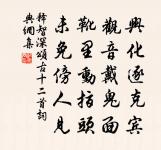 興化逐克賓
觀音戴鬼面
靴里動指頭
未免傍人見
釋智深頌古十二首詞
典網集